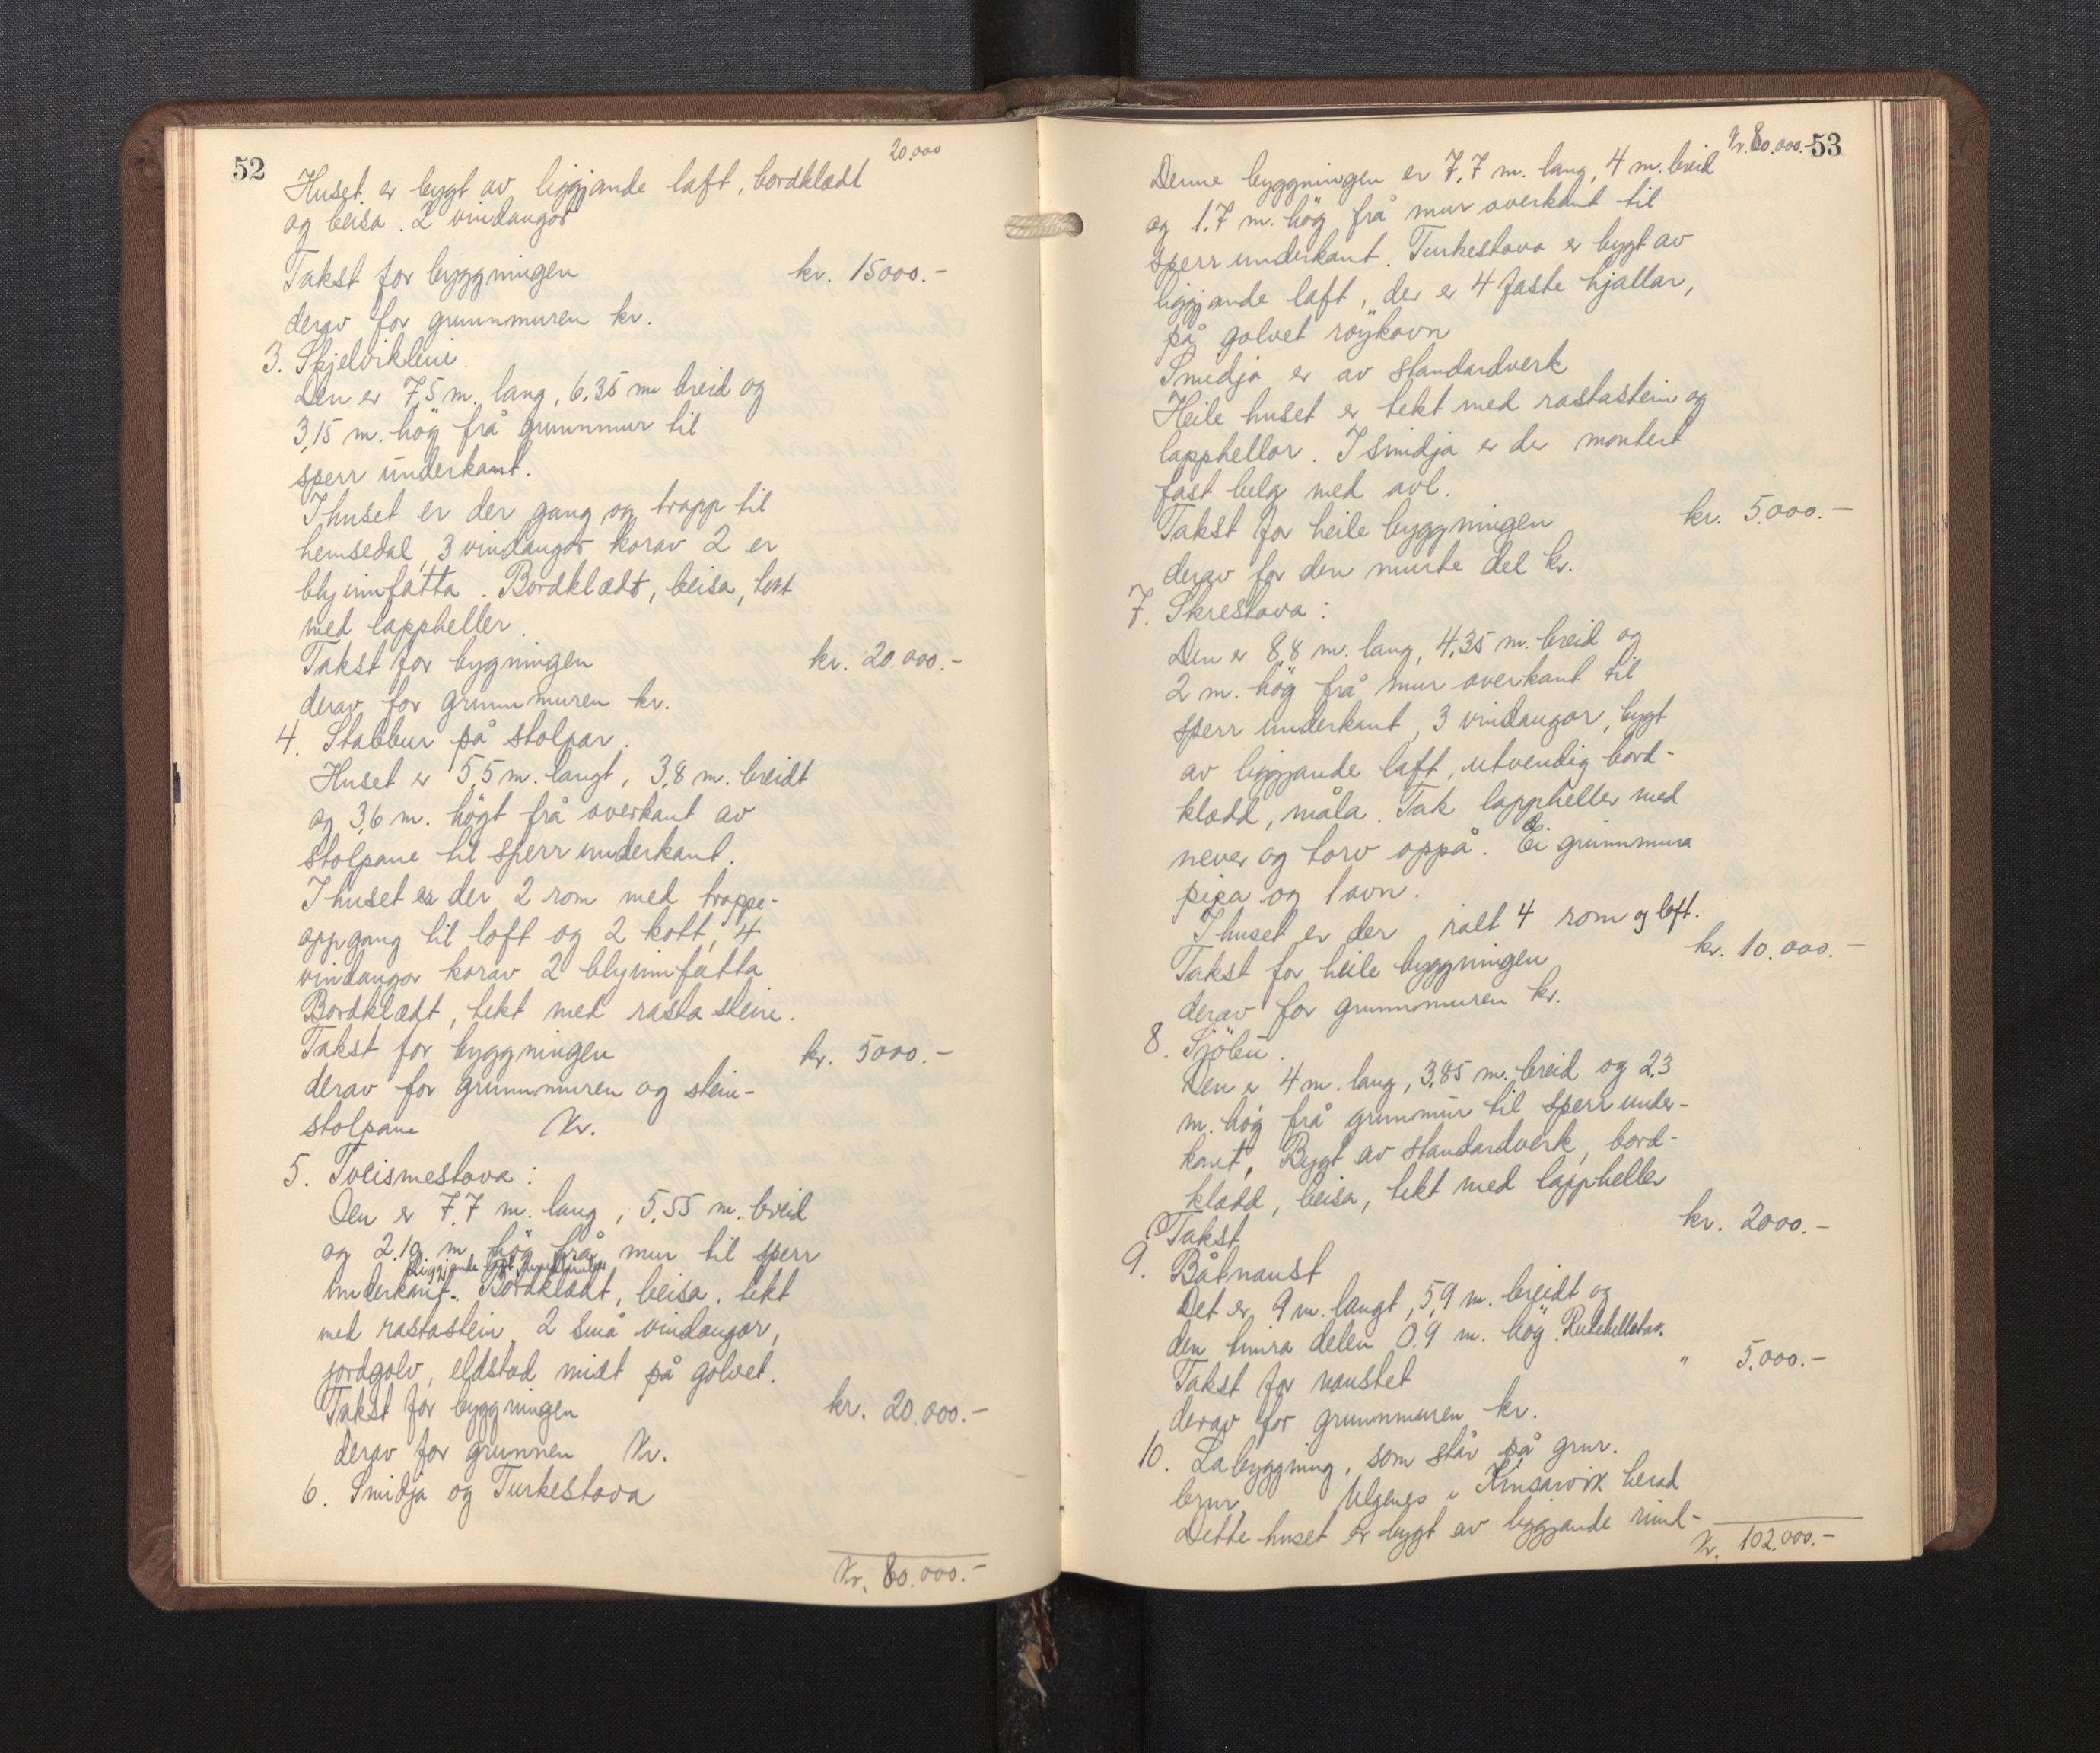 52
20.000
Huset er bygt av liggjande laft, bordklædt
og beisa. 2 vindaugor
Takst for byggningen kr. 15000.-
derav for grunnmuren kr.
3. Skjelvikbui
Den er 7,5 m. lang, 6,35 m breid og
3,15 m. hög frå grunnmur til
sperr underkant.
I huset er der gang og trapp til
hemsedal, 3 vindaugor korav 2 er
blyinnfatta. Bordklædt, beisa, tekt
med lappheller.
Takst for bygningen kr. 20.000.-
derav for grunnmuren kr.
4. Stabbur på stolpar.
Huset er 5,5 m. langt, 3,8 m. breidt
og 3,6 m. högt frå overkant av
stolpane til sperr underkant.
I huset er der 2 rom med trappe-
oppgang til loft og 2 kott, 4
vindaugor korav 2 blyinnfatta
Bordklædt, tekt med rasta stein.
Takst for byggningen kr. 5000.-
derav for grunnmuren og stein-
stolpane Kr.
5. Tveismestova:
Den er 7,7 m. lang, 5,55 m. breid
og 2.10 m. hög frå mur til sperr
liggjande laft
underkant. Bordklædt, beisa, tekt
med rastastein, 2 små vindaugor,
jordgolv, eldstad midt på golvet.
Takst for byggningen kr. 20.000.-
derav for grunnen Kr.
6. Smidja og Turkestova
Kr. 80.000.-
Kr. 80.000.- 53
Denne byggningen er 7,7 m. lang, 4 m. breid
og 1,7 m. hög frå mur overkant til
sperr underkant. Turkestova er bygt av
liggjande laft, der er 4 faste hjallar,
på golvet röykovn
Smidja er av standardverk
Heile huset er tekt med rastastein og
lapphellor. I smidja er der montert
fast belg med avl.
Takst for heile byggningen kr. 5.000.-
derav for den murte del kr.
7. Skrestova:
Den er 8,8 m. lang, 4,35 m. breid og
2 m. hög frå mur overkant til
sperr underkant, 3 vindaugor, bygt
av liggjande laft, utvendig bord-
klædd, måla. Tak lappheller med
never og torv oppå. Ei grunnmura
pipa og 1 ovn.
I huset er der ialt 4 rom og loft.
Takst for heile byggningen kr. 10.000.-
derav for grunnmuren kr.
8. Sjöbu.
Den er 4 m. lang, 3,85 m. breid og 2,3
m. hög frå grunnmur til sperr under-
kant, Bygt av standardverk, bord-
klædd, beisa, tekt med lappheller
Takst kr. 2000.-
9. Båtnaust
Det er 9 m. langt, 5,9 m. breidt og
den timra delen 0.9 m. hög. Rutehelletak.
Takst for naustet " 5.000.-
derav for grunnmuren kr.
10. Labyggning, som står på gnr.
bnr. Ulgenes i Kinsarvik herad
Dette huset er bygt av liggjande rund-
Kr. 102.000.-